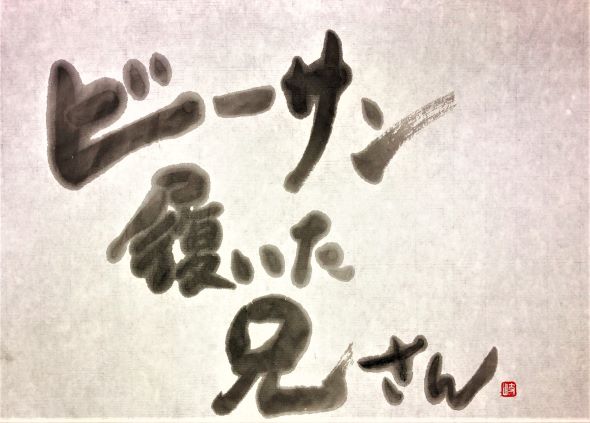 ビーサン
履いた
兄さん